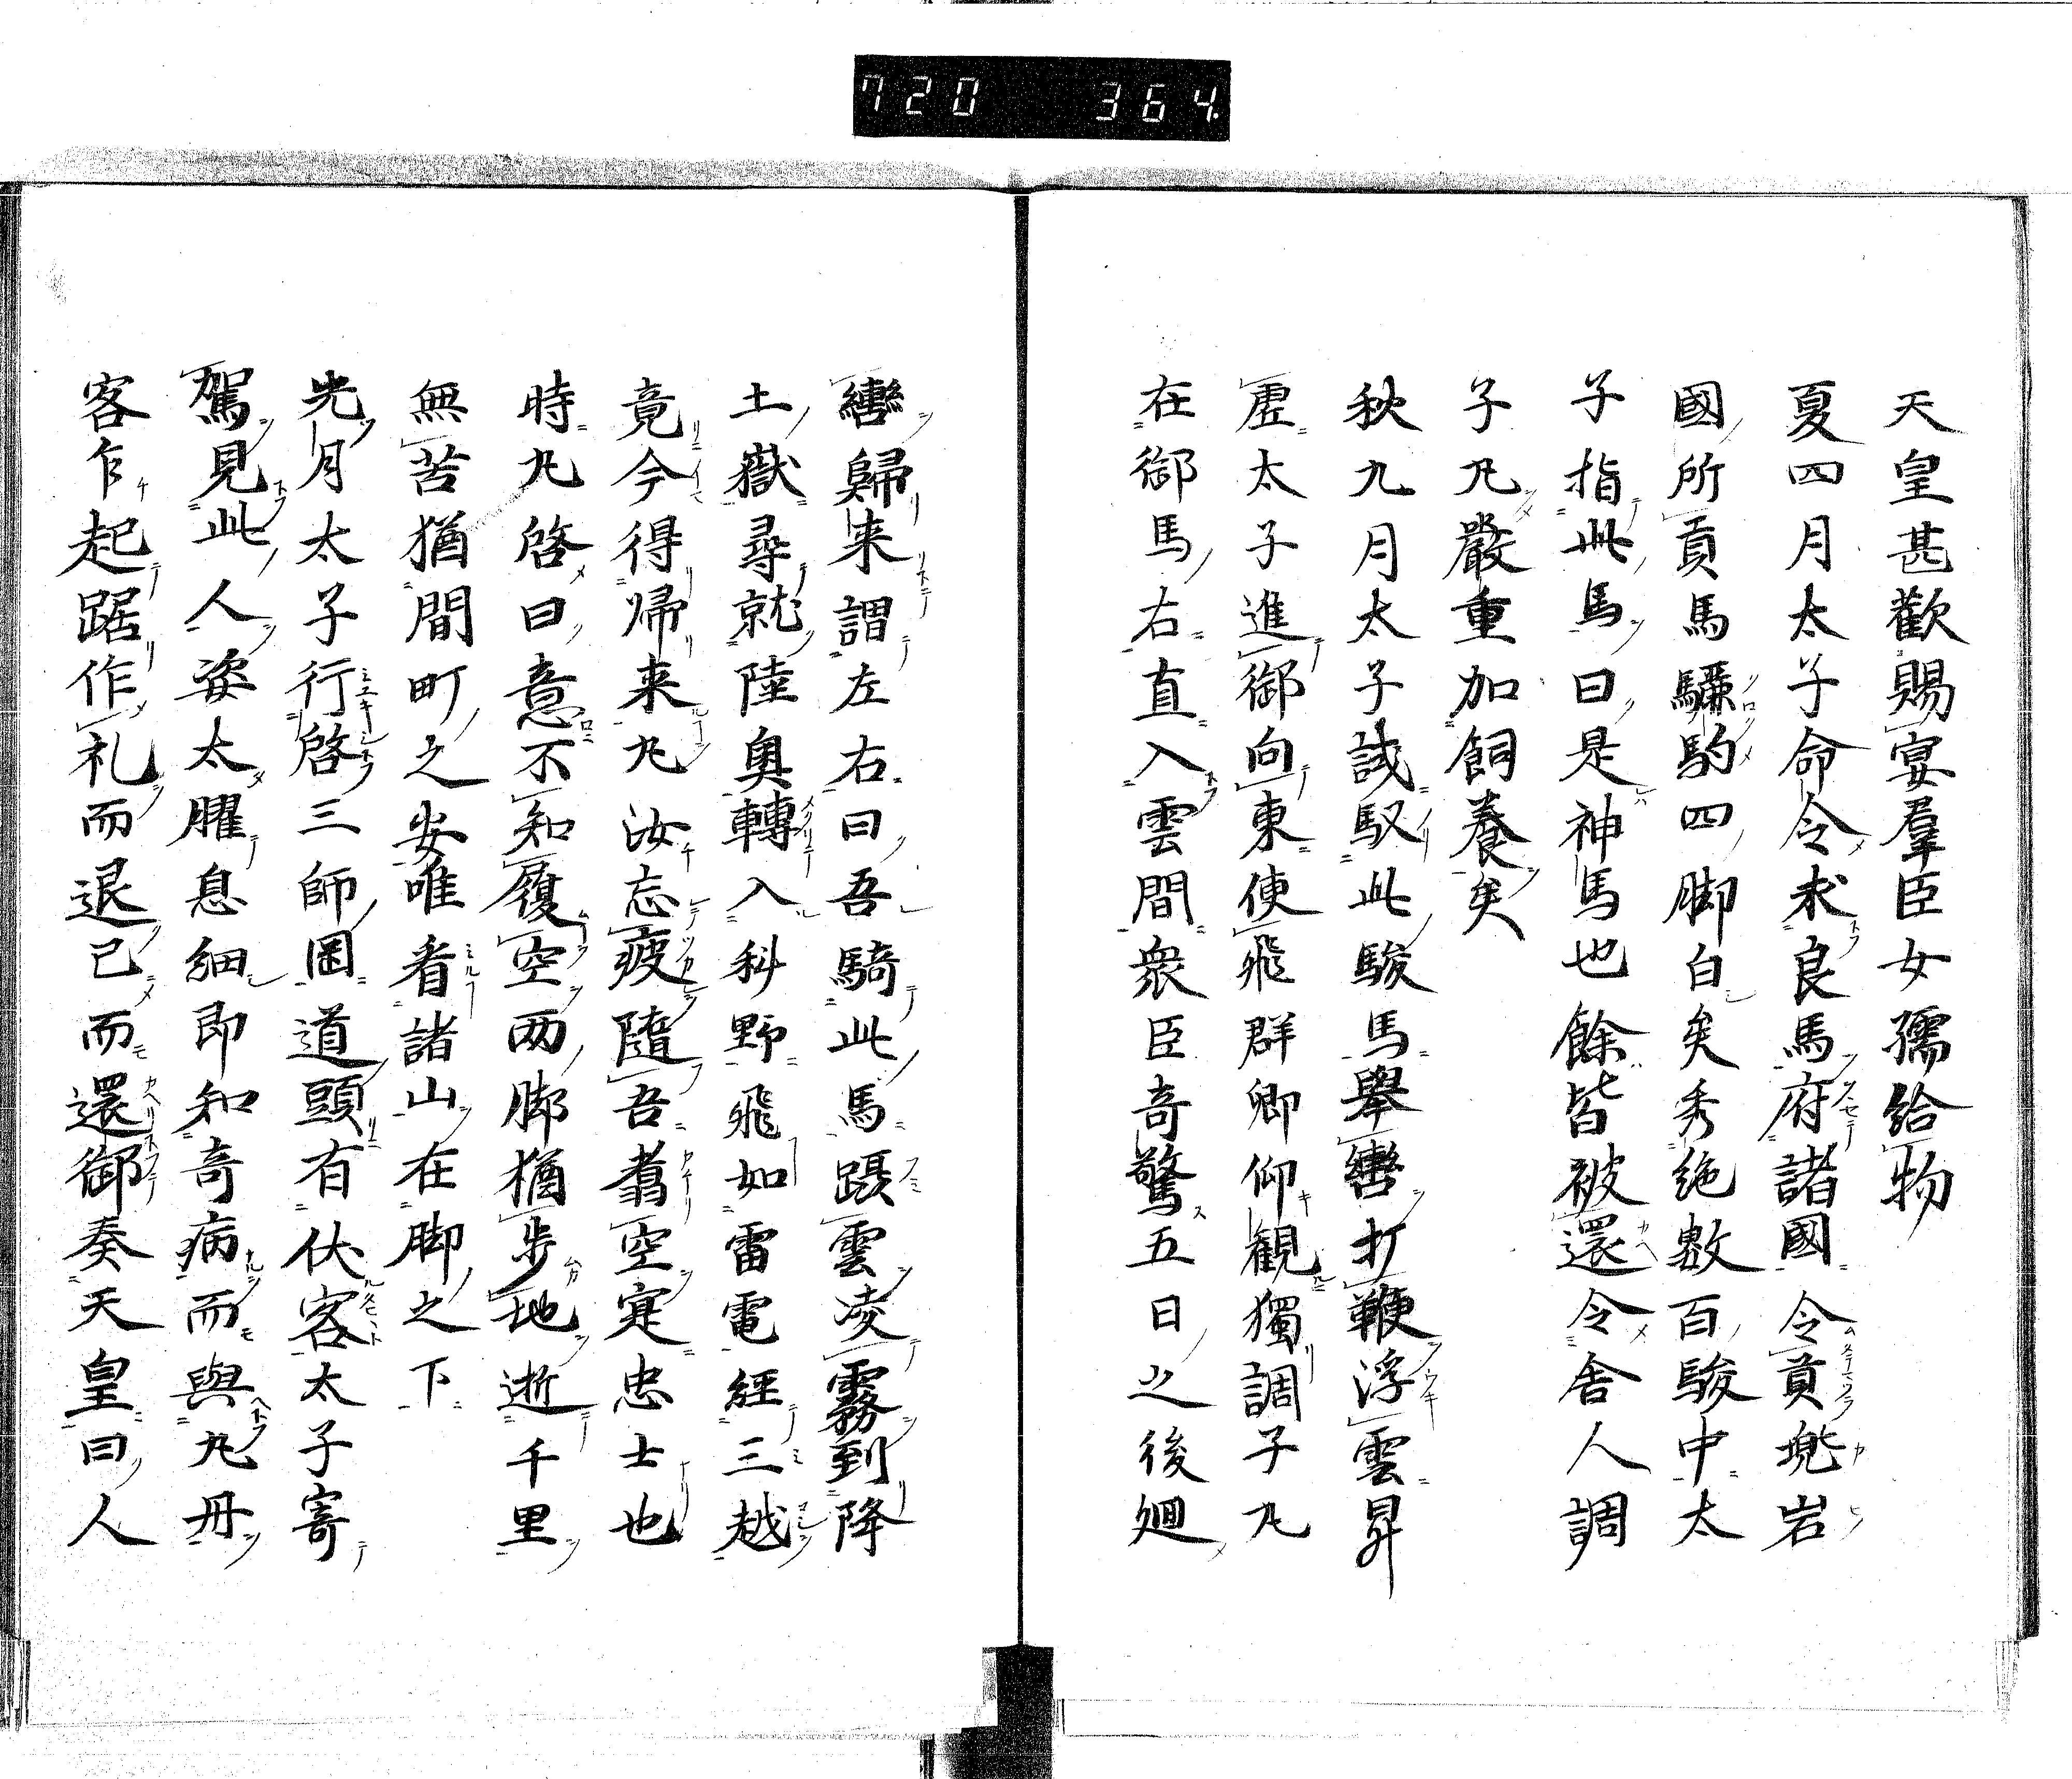 720 364
天皇甚歡賜宴羣臣女孺給物
夏四月太子命令求良馬府諸國令貢兠岩
國所貢馬驪駒四脚白矣秀絶數百駿中太
子指此馬曰是神馬也餘皆被還令舎人調
子丸嚴重加飼養矣
秋九月太子試馭此駿馬舉轡打鞭浮雲昇
虚太子進御向東使飛群卿仰観獨調子丸
在御馬右直入雲間衆臣奇驚五日之後廻
轡歸来謂左右曰吾騎此馬躡雲凌霧到降
土嶽尋就陸奥轉入科野飛如雷電經三越
竟今得帰来丸汝忘疲隨吾翥空寔忠士也
時丸啓曰意不知履空两脚猶歩地逝千里
無苦猶間町之安唯看諸山在脚之下
先月太子行啓三師岡道頭有伏客太子寄
駕見此人姿太臞息細即知奇病而與丸丹
客乍起踞作礼而退已而還御奏天皇曰人